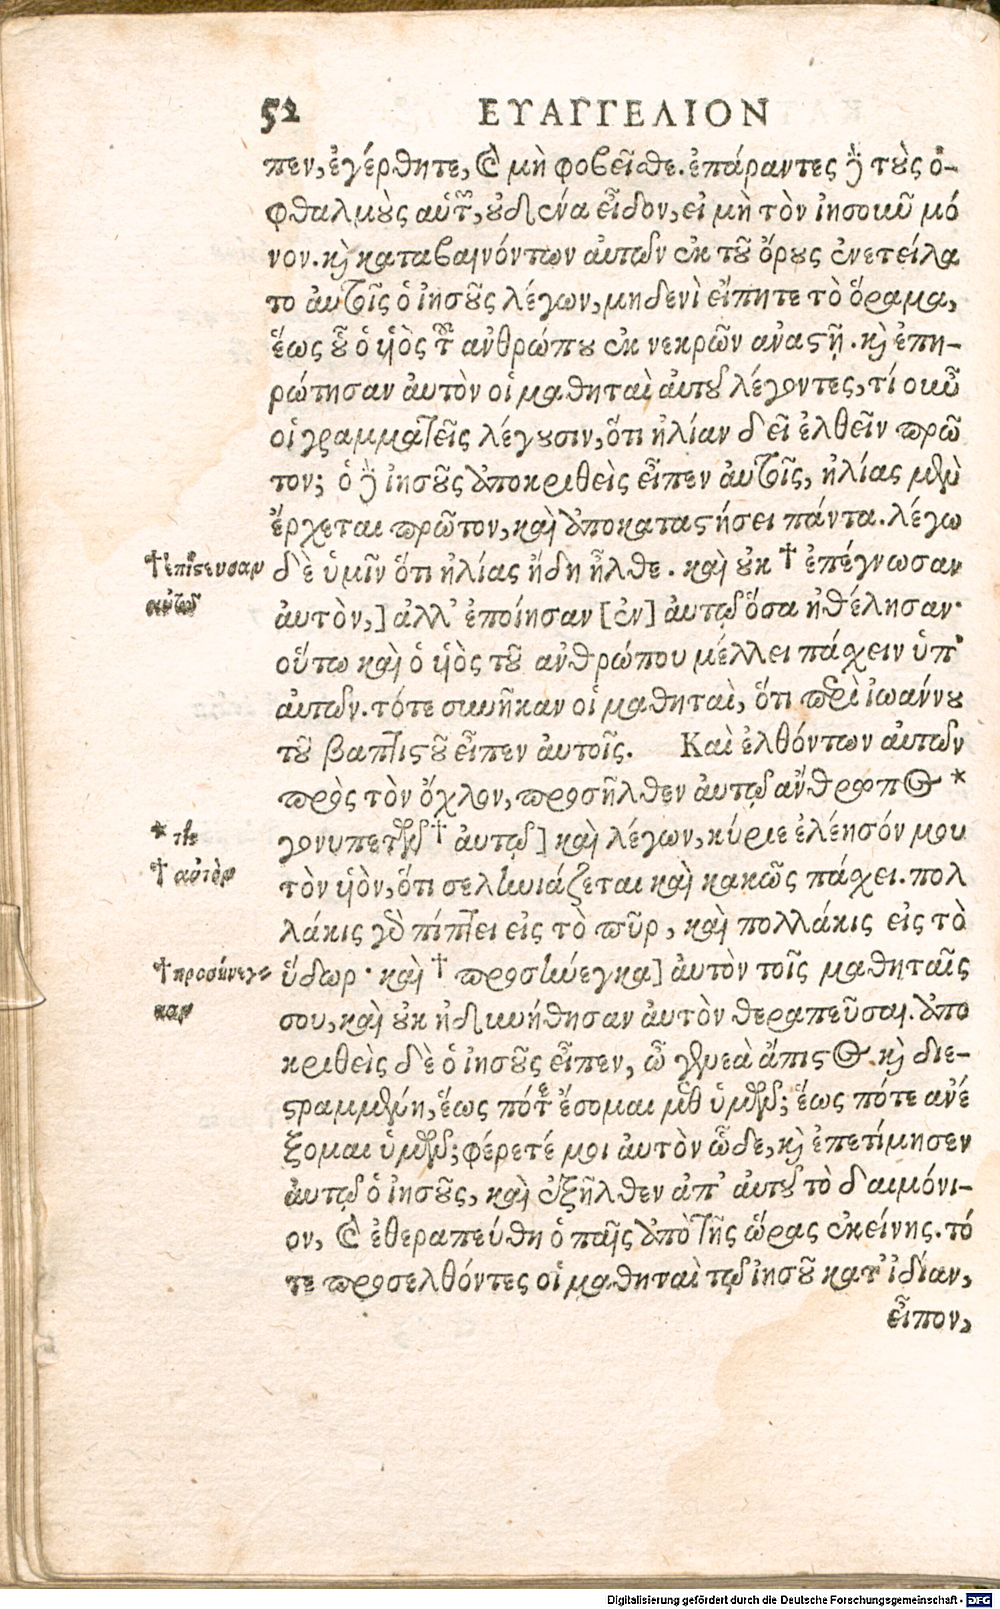 52 ΕΥΑΓΓΕΛΙΟΝ
πεν, ἐγέρθητε, καὶ μὴ φοβεῖσθε. ἐπάραντες δὲ τοὺς ὀ-
φθαλμοὺς αὑτῶν, οὐδένα εἶδον, εἰ μὴ τὸν ἰησοιῦ μό
νον. καὶ καταβαινόντων ἀυτῶν ἐκ τοῦ ὄρους ἐνετείλα
το ἀυτοῖς ὁ ἰησοῦς λέγων, μηδενὶ εἴπητε τὸ ὅραμα,
ἕως οὗ ὁ υἱὸς τοῦ ανθρώπου ἐκ νεκρῶν αναστῇ. καὶ ἐπη-
ρώτησαν ἀυτὸν οἱ μαθηταὶ ἀυτοῦ λέγοντες, τί οιυῦ
οἱ γραμματεῖς λέγουσιν, ὅτι ἠλίαν δεῖ ἐλθεῖν πρῶ
τον; ὁ δὲ ἰησοῦς ἀποκριθεὶς εἶπεν ἀυτοῖς, ἠλίας μὲν
ἔρχεται πρῶτον, καὶ ἀποκαταστήσει πάντα. λέγω
δὲ ὑμῖν ὅτι ἠλίας ἤδη ἦλθε. καὶ οὐκ † ἐπέγνωσαν
ἀυτὸν,] ἀλλ’ ἐποίησαν [ἐν] ἀυτῷ ὅσα ἠθέλησαν·
οὕτω καὶ ὁ υἱὸς τοῦ ανθρώπου μέλλει πάσχειν ὑπ’
ἀυτῶν. τότε σιυῆκαν οἱ μαθηταὶ, ὅτι περὶ ἰωάννου
τοῦ βαπτιστοῦ εἶπεν ἀυτοῖς. Καὶ ἐλθόντων ἀυτῶν
πρὸς τὸν ὄχλον, προσῆλθεν ἀυτῷ ἄνθρωπος *
γονυπετῶν † ἀυτῷ] καὶ λέγων, κύριε ἐλέησόν μου
τὸν υἱὸν, ὅτι σεληνιάζεται καὶ κακῶς πάσχει. πολ
λάκις γὰρ πίπτει εἰς τὸ πῦρ, καὶ πολλάκις εἰς τὸ
ὕδωρ· καὶ † προσήνεγκα] ἀυτὸν τοῖς μαθηταῖς
σου, καὶ οὐκ ἠδιυνήθησαν ἀυτὸν θεραπεῦσαι. ἀπο
κριθεὶς δὲ ὁ ἰησοῦς εἶπεν, ὦ γενεὰ ἄπιστος καὶ διε-
στραμμένη, ἕως πότε ἔσομαι μεθ’ ὑμῶν; ἕως πότε ανέ
ξομαι ὑμῶν; φέρετέ μοι ἀυτὸν ὧδε, καὶ ἐπετίμησεν
ἀυτῷ ὁ ἰησοῦς, καὶ ἐξῆλθεν ἀπ’ ἀυτοῦ τὸ δαιμόνι-
ον, καὶ ἐθεραπεύθη ὁ παῖς ἀπὸ τῆς ὥρας ἐκείνης. τό
τε προσελθόντες οἱ μαθηταὶ τῷ ἰησοῦ κατ’ ἰδίαν,
εἶπον,
† ἐπίστευσαν
αὐτῷ
* τὶς
† αὐτὸν
† προσήνεγκ
καν
Digitalisierung gefördert durch die Deutsche Forschungsgemeinschaft - DFG